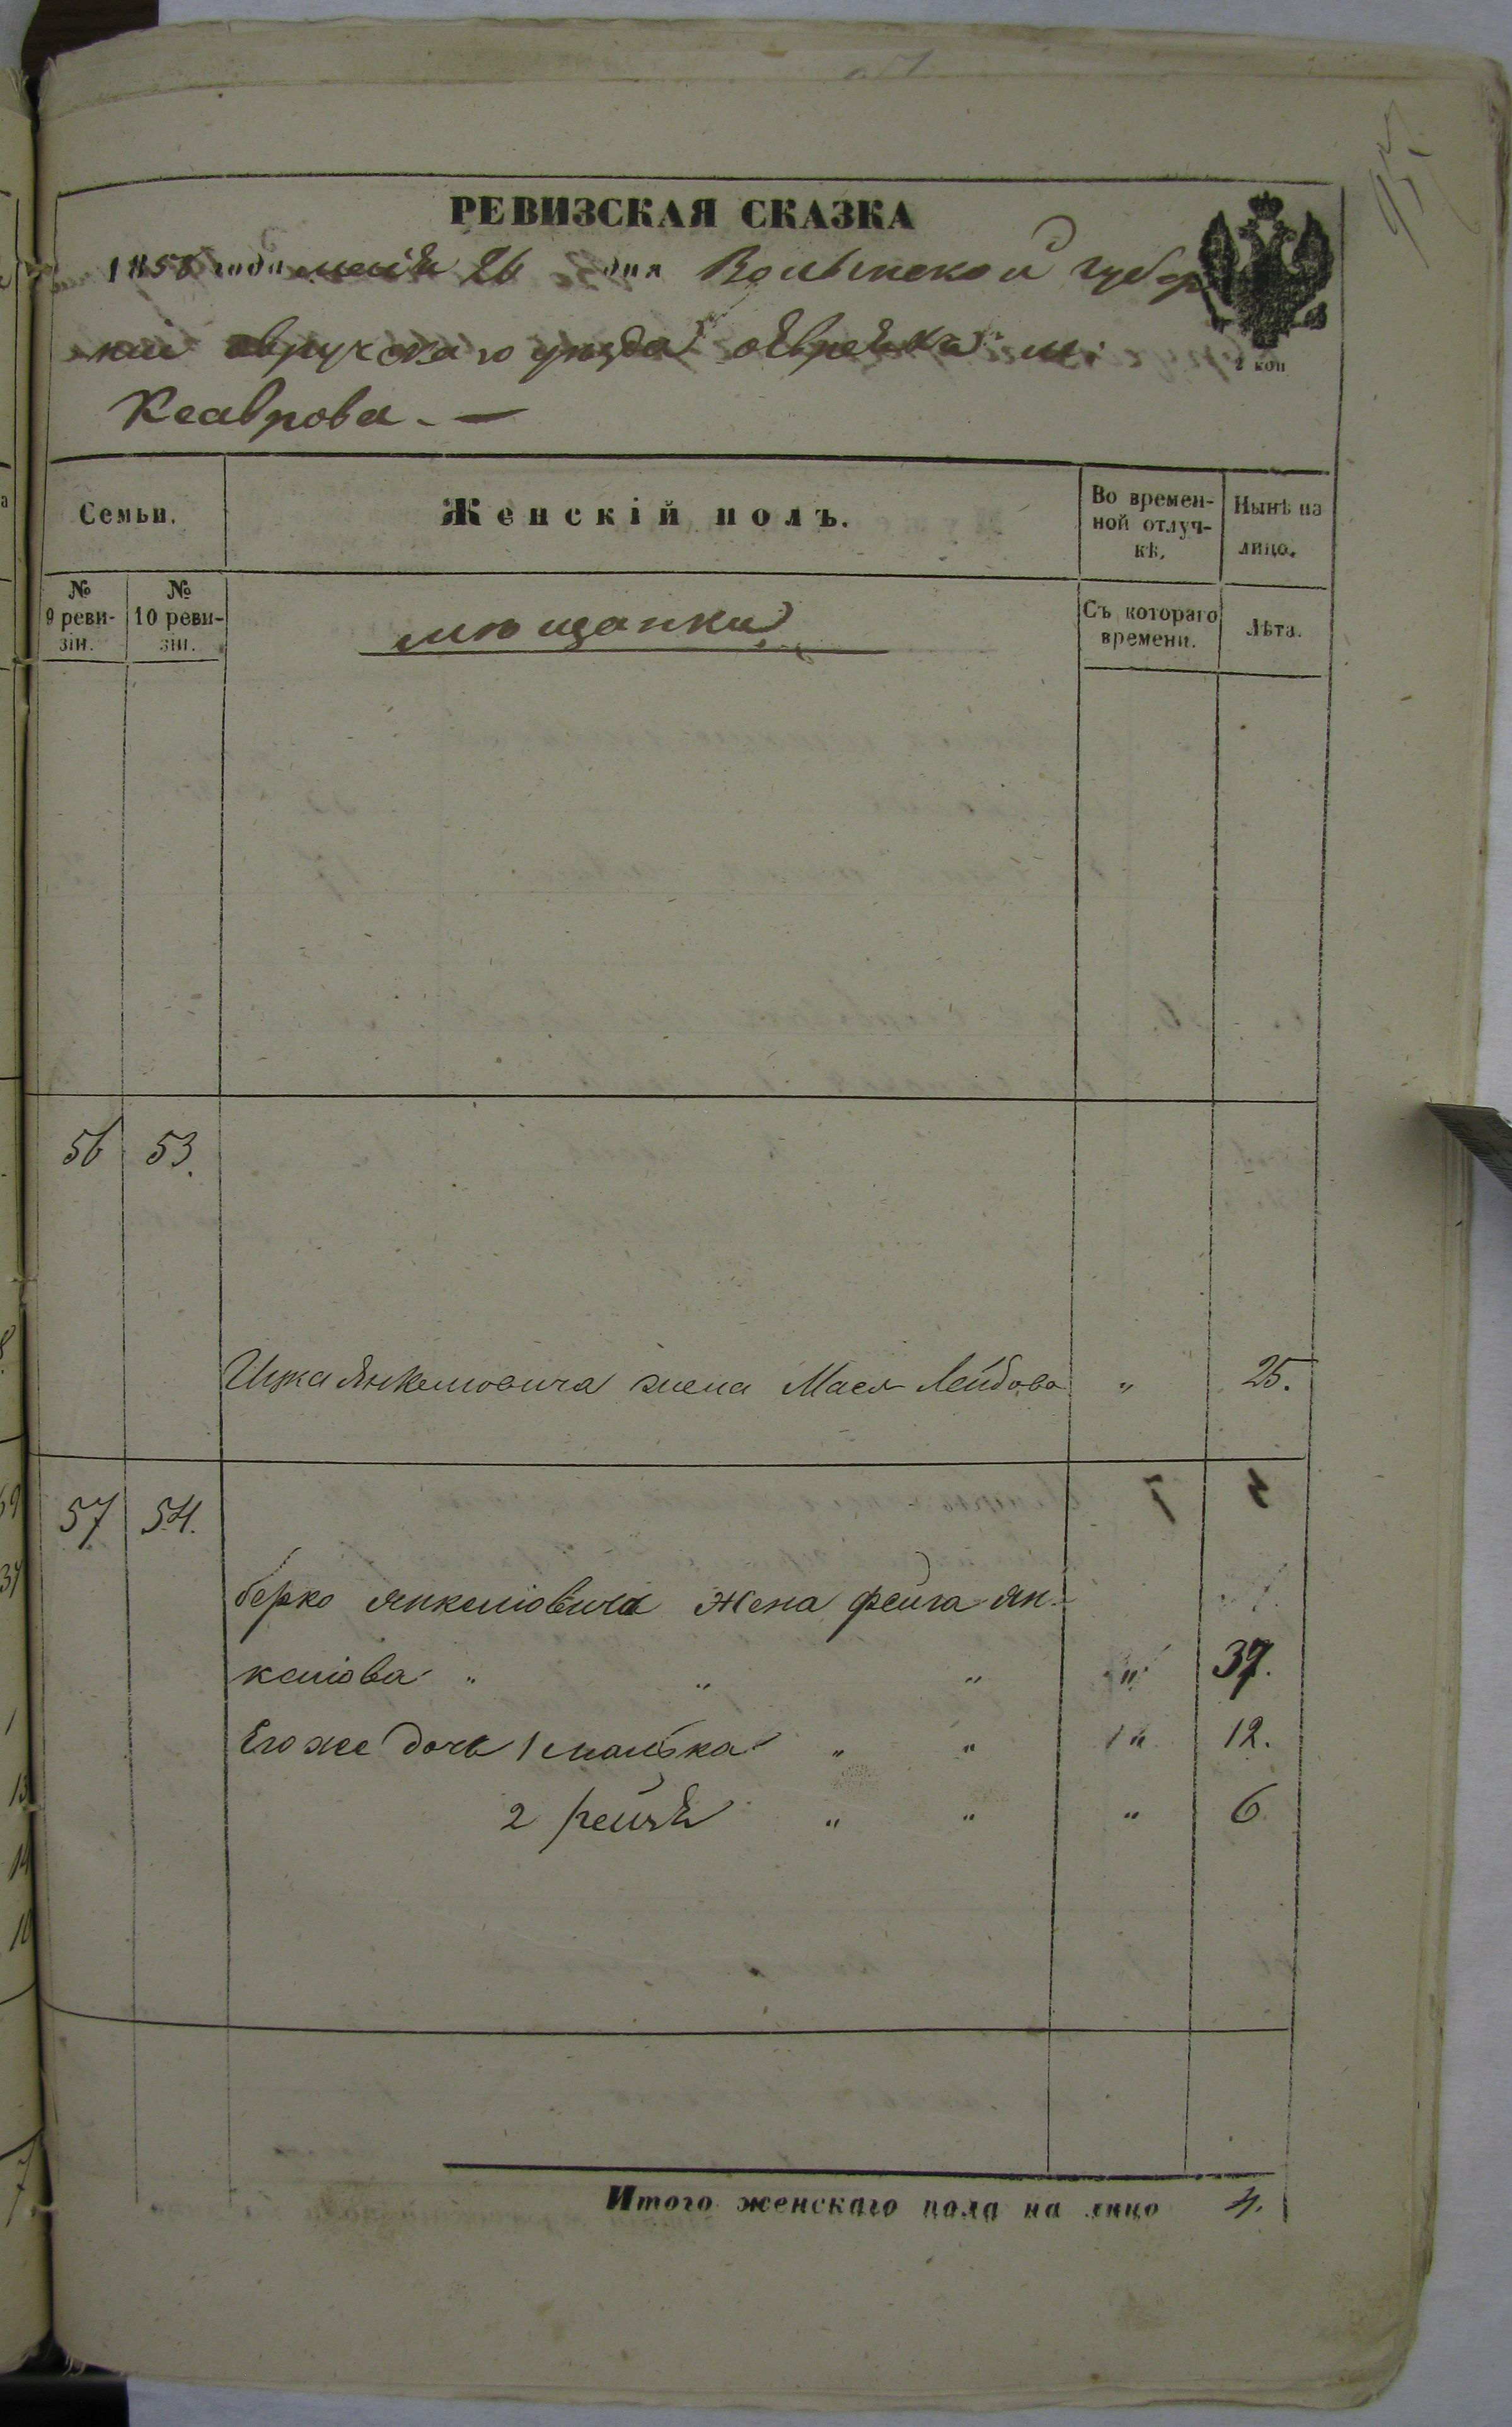 РЕВИЗСКАЯ СКАЗКА
1858 года маія 26 дня Волынской губер
ніи овручскаго уѣзда
2 коп
Семьи.
Женскій полъ.
Во времен-
ной отлуч-
кѣ.
Нынѣ на
лицо.
№
9 реви-
зіи.
№
10 реви-
зіи.
мѣщанки
Съ котораго
времени.
Лѣта.
56 53.
Ицка Янкелиовича жена Мася Лейбова „ 25.
57 54.
берко янкелиовича жена фейга ян-
келиова „ „ „ „ 37.
Его же дочь 1 малька „ „ „ 12.
2 рейзя „ „ „ 6
Итого женскаго пола на лицо 4.